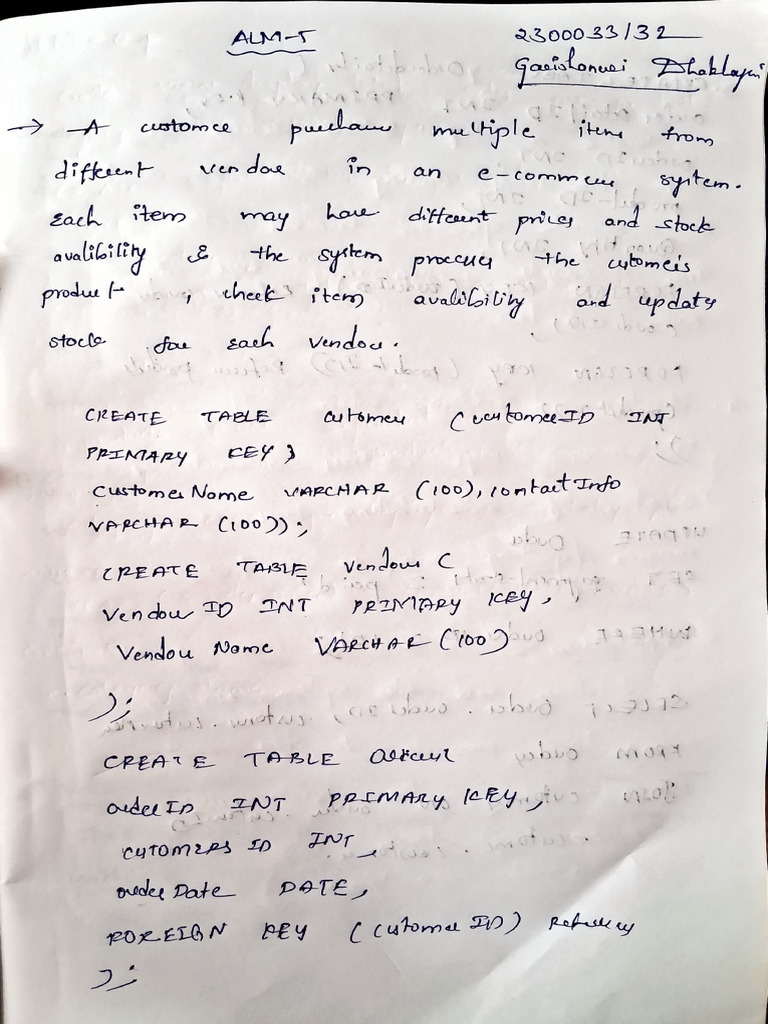 ALM-5
2300033132
→ A customer purchase multiple items from
different vendor in an e-commerce system.
Each item may have different prices and stock
avalibility & the system processes the cutomers
product , check item avalibility and update
stock for each vendor.
CREATE TABLE cutomer (customerID INT
PRIMARY KEY,
CustomerName VARCHAR (100), contactInfo
VARCHAR (100));
CREATE TABLE Vendors (
Vendor ID INT PRIMARY KEY,
Vendor Name VARCHAR (100)
);
CREATE TABLE
orderID INT PRIMARY KEY,
CUTOMERS ID INT,
order Date DATE,
FOREIGN KEY (Customer ID)
);